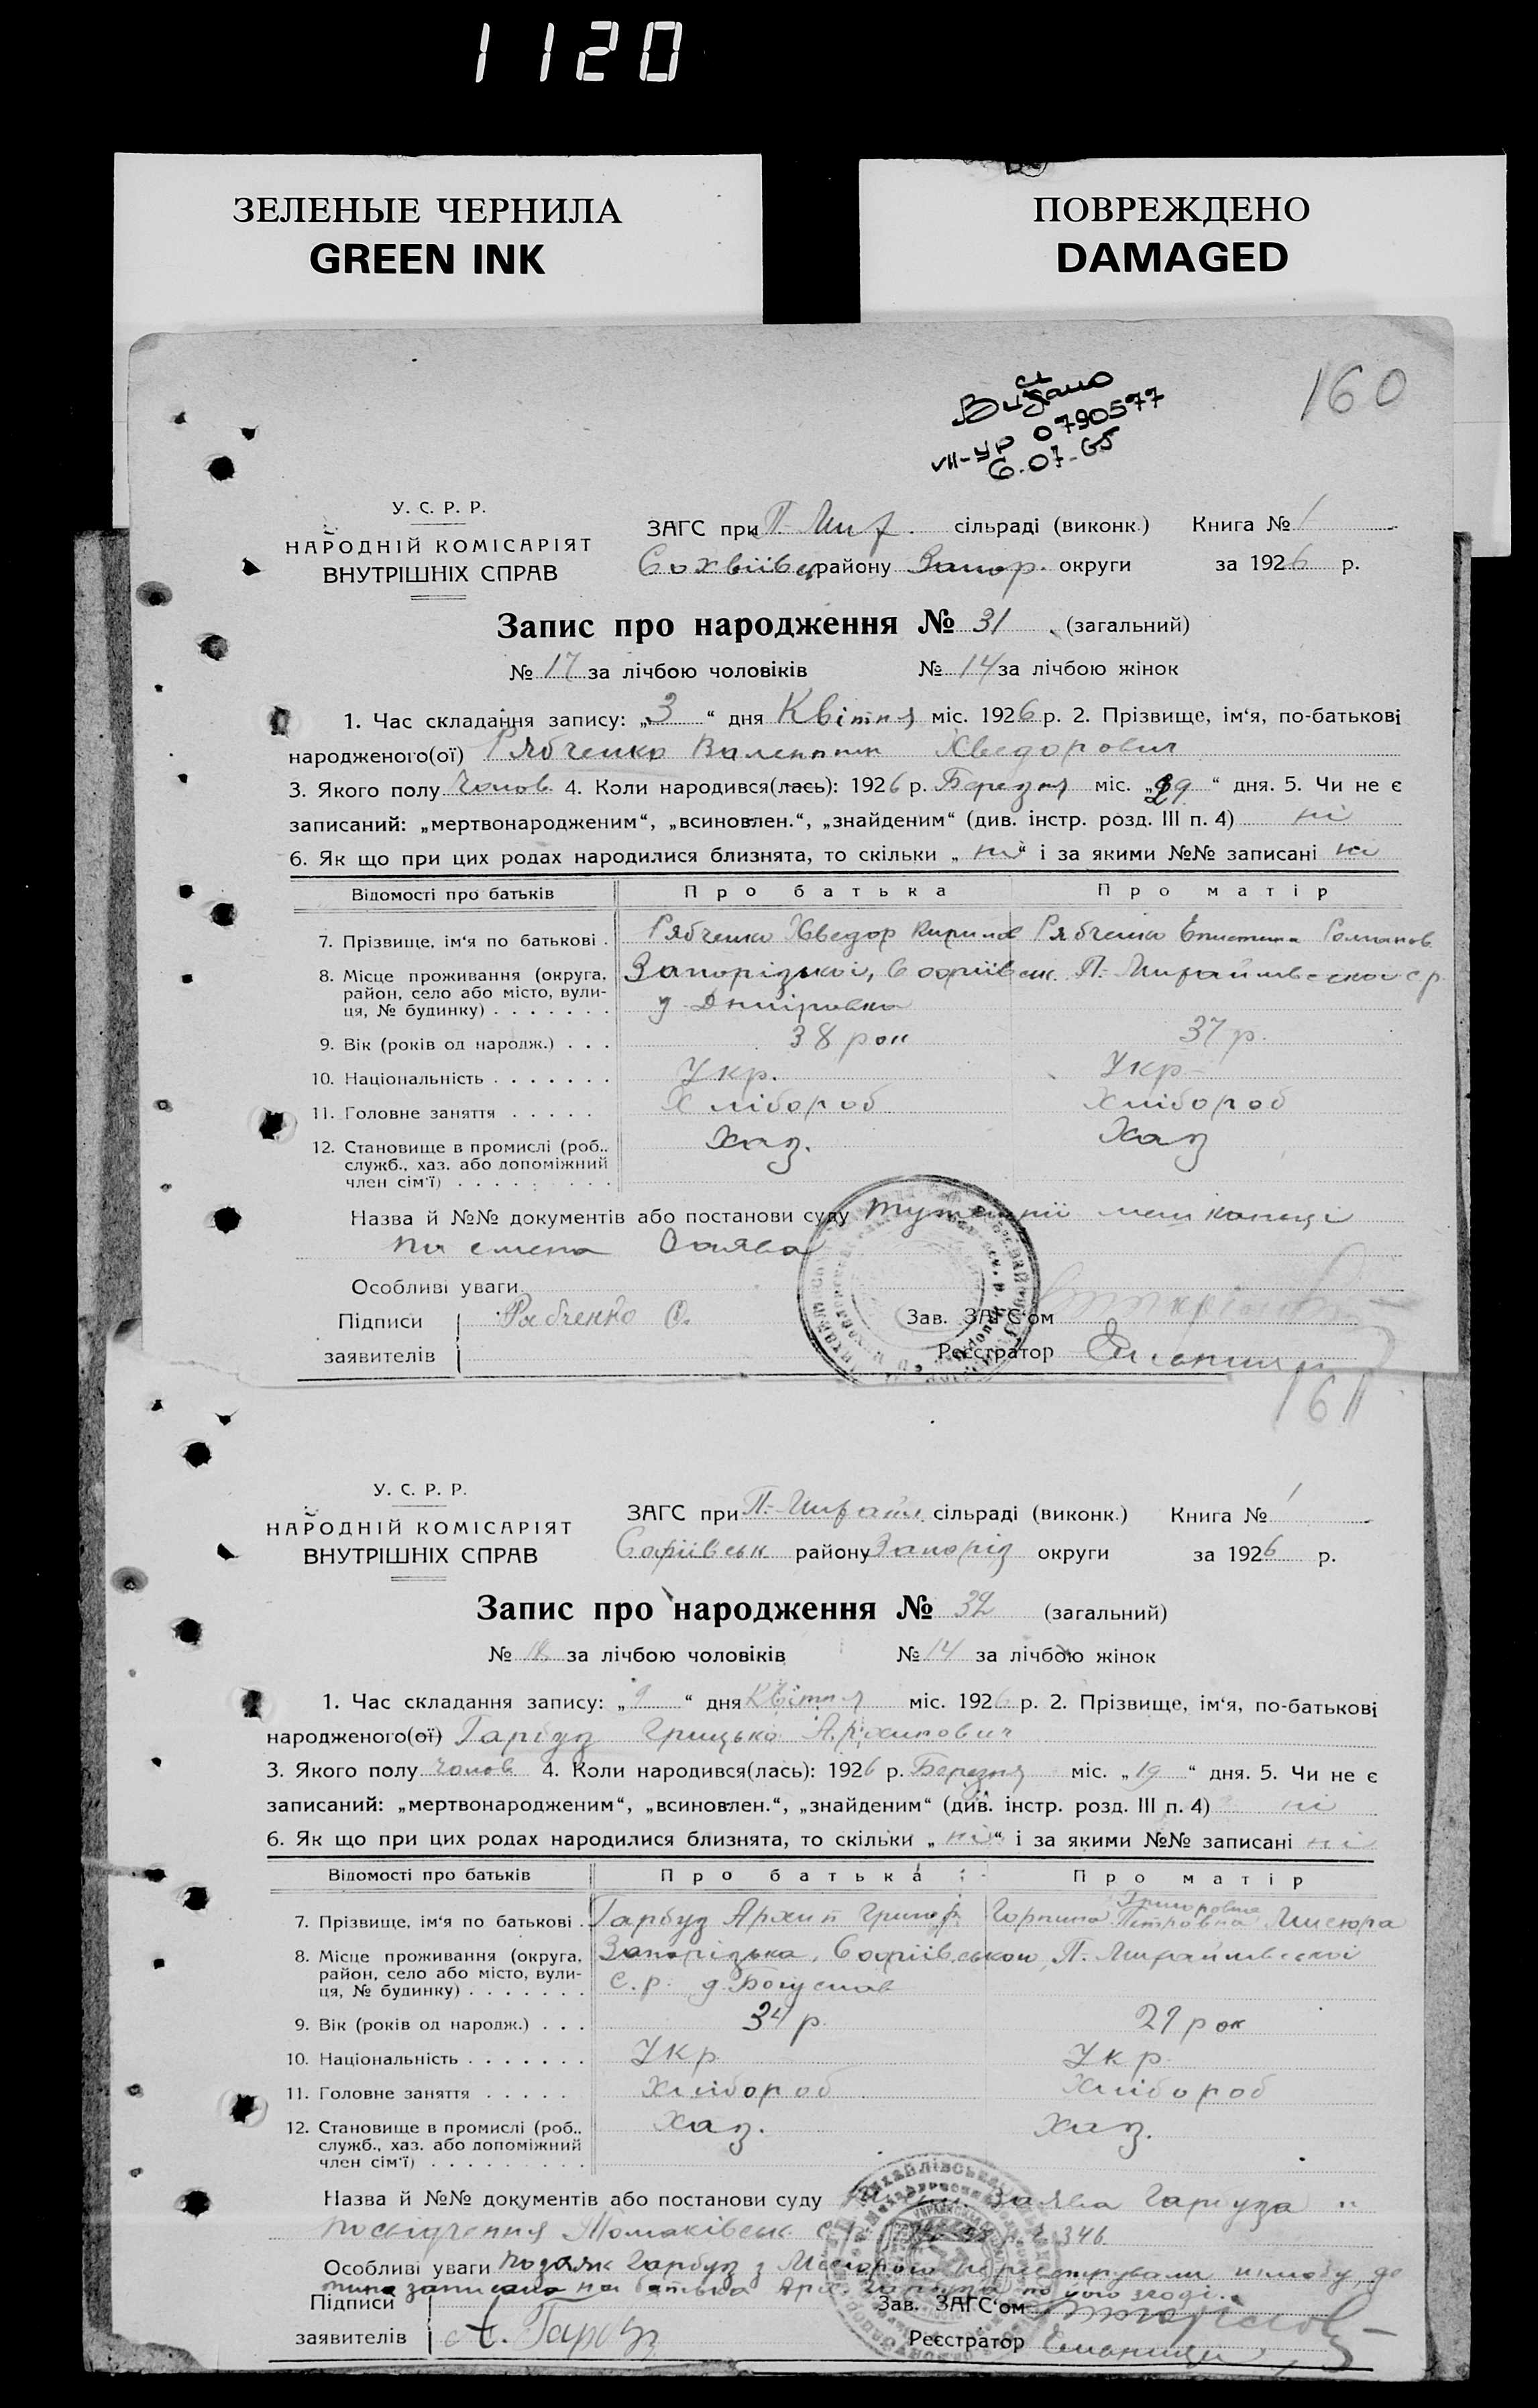 1120
ЗЕЛЕНЫЕ ЧЕРНИЛА
GREEN INK
ПОВРЕЖДЕНО
DAMAGED
160
Видано
VII-УР 0790577
6.07-65
У. С. Р. Р.
НАРОДНІЙ КОМІСАРІЯТ
ВНУТРІШНІХ СПРАВ
ЗАГС при П.- сільраді (виконк.) Книга № 1
району Запор. округи за 1926 р.
Запис про народження № 31 (загальний)
№ 17 за лічбою чоловіків № 14 за лічбою жінок
1. Час складання запису: „3“ дня Квітня міс. 1926 р. 2. Прізвище, ім‘я, по-батькові
народженого(ої) Рябченко Валентин Хведорович
3. Якого полу Чолов. 4. Коли народився(лась): 1926 р. Березня міс. „29“ дня. 5. Чи не є
записаний: „мертвонародженим“, „всиновлен.“, „знайденим“ (див. інстр. розд. III п. 4) ні
6. Як що при цих родах народилися близнята, то скільки „ні“ і за якими №№ записані ні
Відомості про батьків Про батька Про матір
7. Прізвище, ім‘я по батькові . Рябченко Хведор Кирилов Рябченко Романов
8. Місце проживання (округа, район, село або місто, вулиця, № будинку) . . . . . . . Запорізької, Софіївськ. П.- Михайлівської с р
д Дніпровка
9. Вік (років од народж.) . . . 38 рок 37 р.
10. Національність . . . . . . . Укр. Укр
11. Головне заняття . . . . . Хлібороб Хлібороб
12. Становище в промислі (роб., служб., хаз. або допоміжний член сім‘ї) . . . . . . . . . Хаз. Хаз
Назва й №№ документів або постанови суду мешканці
Заява
Особливі уваги
Підписи заявителів Рябченко
Зав. ЗАГС‘ом
Реєстратор
161
У. С. Р. Р.
НАРОДНІЙ КОМІСАРІЯТ
ВНУТРІШНІХ СПРАВ
ЗАГС при П.- Михайл. сільраді (виконк.) Книга № 1
Софіївськ району Запоріз округи за 1926 р.
Запис про народження № 32 (загальний)
№ 18 за лічбою чоловіків № 14 за лічбою жінок
1. Час складання запису: „9“ дня Квітня міс. 1926 р. 2. Прізвище, ім‘я, по-батькові
народженого(ої) Гарбуз Грицько Архипович
3. Якого полу Чолов 4. Коли народився(лась): 1926 р. Березня міс. „19“ дня. 5. Чи не є
записаний: „мертвонародженим“, „всиновлен.“, „знайденим“ (див. інстр. розд. III п. 4) ні
6. Як що при цих родах народилися близнята, то скільки „ні“ і за якими №№ записані ні
Відомості про батьків Про батька Про матір
7. Прізвище, ім‘я по батькові . Гарбуз Архип Григор Горпина Петровна Григоровна Мисюра
8. Місце проживання (округа, район, село або місто, вулиця, № будинку) . . . . . . . Запорізька, Софіївською, П.- Михайлівської
с. р. д. Богуслав
9. Вік (років од народж.) . . . 34 р. 29 рок
10. Національність . . . . . . . Укр Укр.
11. Головне заняття . . . . . Хлібороб Хлібороб
12. Становище в промислі (роб., служб., хаз. або допоміжний член сім‘ї) . . . . . . . . . Хаз. Хаз.
Назва й №№ документів або постанови суду Заява Гарбуза
посвідчення Томаківськ 346
Особливі уваги Гарбуз з
записана на батька Гарбуза по його згоді.
Підписи заявителів А. Гарбуз
Зав. ЗАГС‘ом
Реєстратор